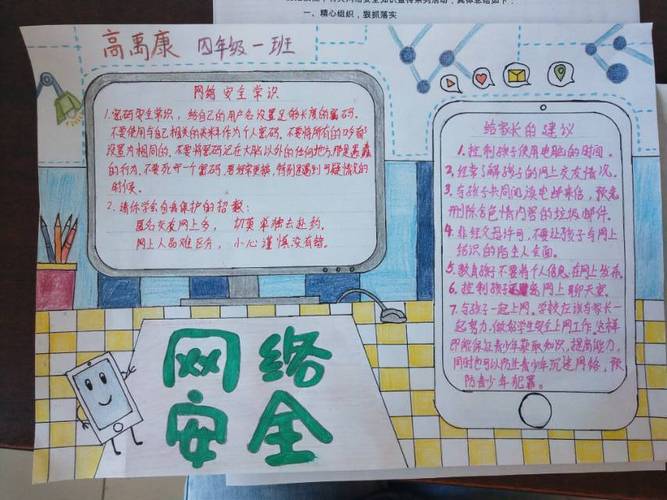 一、精心组织，狠抓落实
高禹康 四年级一班
网络安全常识
1.密码安全常识，给自己的用户名设置足够长度的密码，
不要使用与自己相关的资料作为个人密码，不要将所有的口令都
设置为相同的，不要将密码记在大脑以外的任何地方，那是愚蠢
的行为，不要死守一个密码，要经常更换，特别是遇到可疑情况的
时候。
2.请你学会自我保护的招数：
匿名交友网上多，切莫单独去赴约。
网上人品难区分，小心谨慎没有错。
给家长的建议
1.控制孩子使用电脑的时间。
2.经常了解孩子的网上交友情况。
3.与孩子共同阅读电邮来信，预先
删除色情内容的垃圾邮件。
4.非经父母许可，不要让孩子与网上
结识的陌生人会面。
5.教育孩子不要将个人信息在网上发布。
6.控制孩子进网上聊天室。
7.与孩子一起上网。学校应该与家长一
起努力，做好学生安全上网工作，这样
即能保证青少年获取知识，提高能力，
同时也可以防止青少年沉迷网络，预
防青少年犯罪。
网络
安全